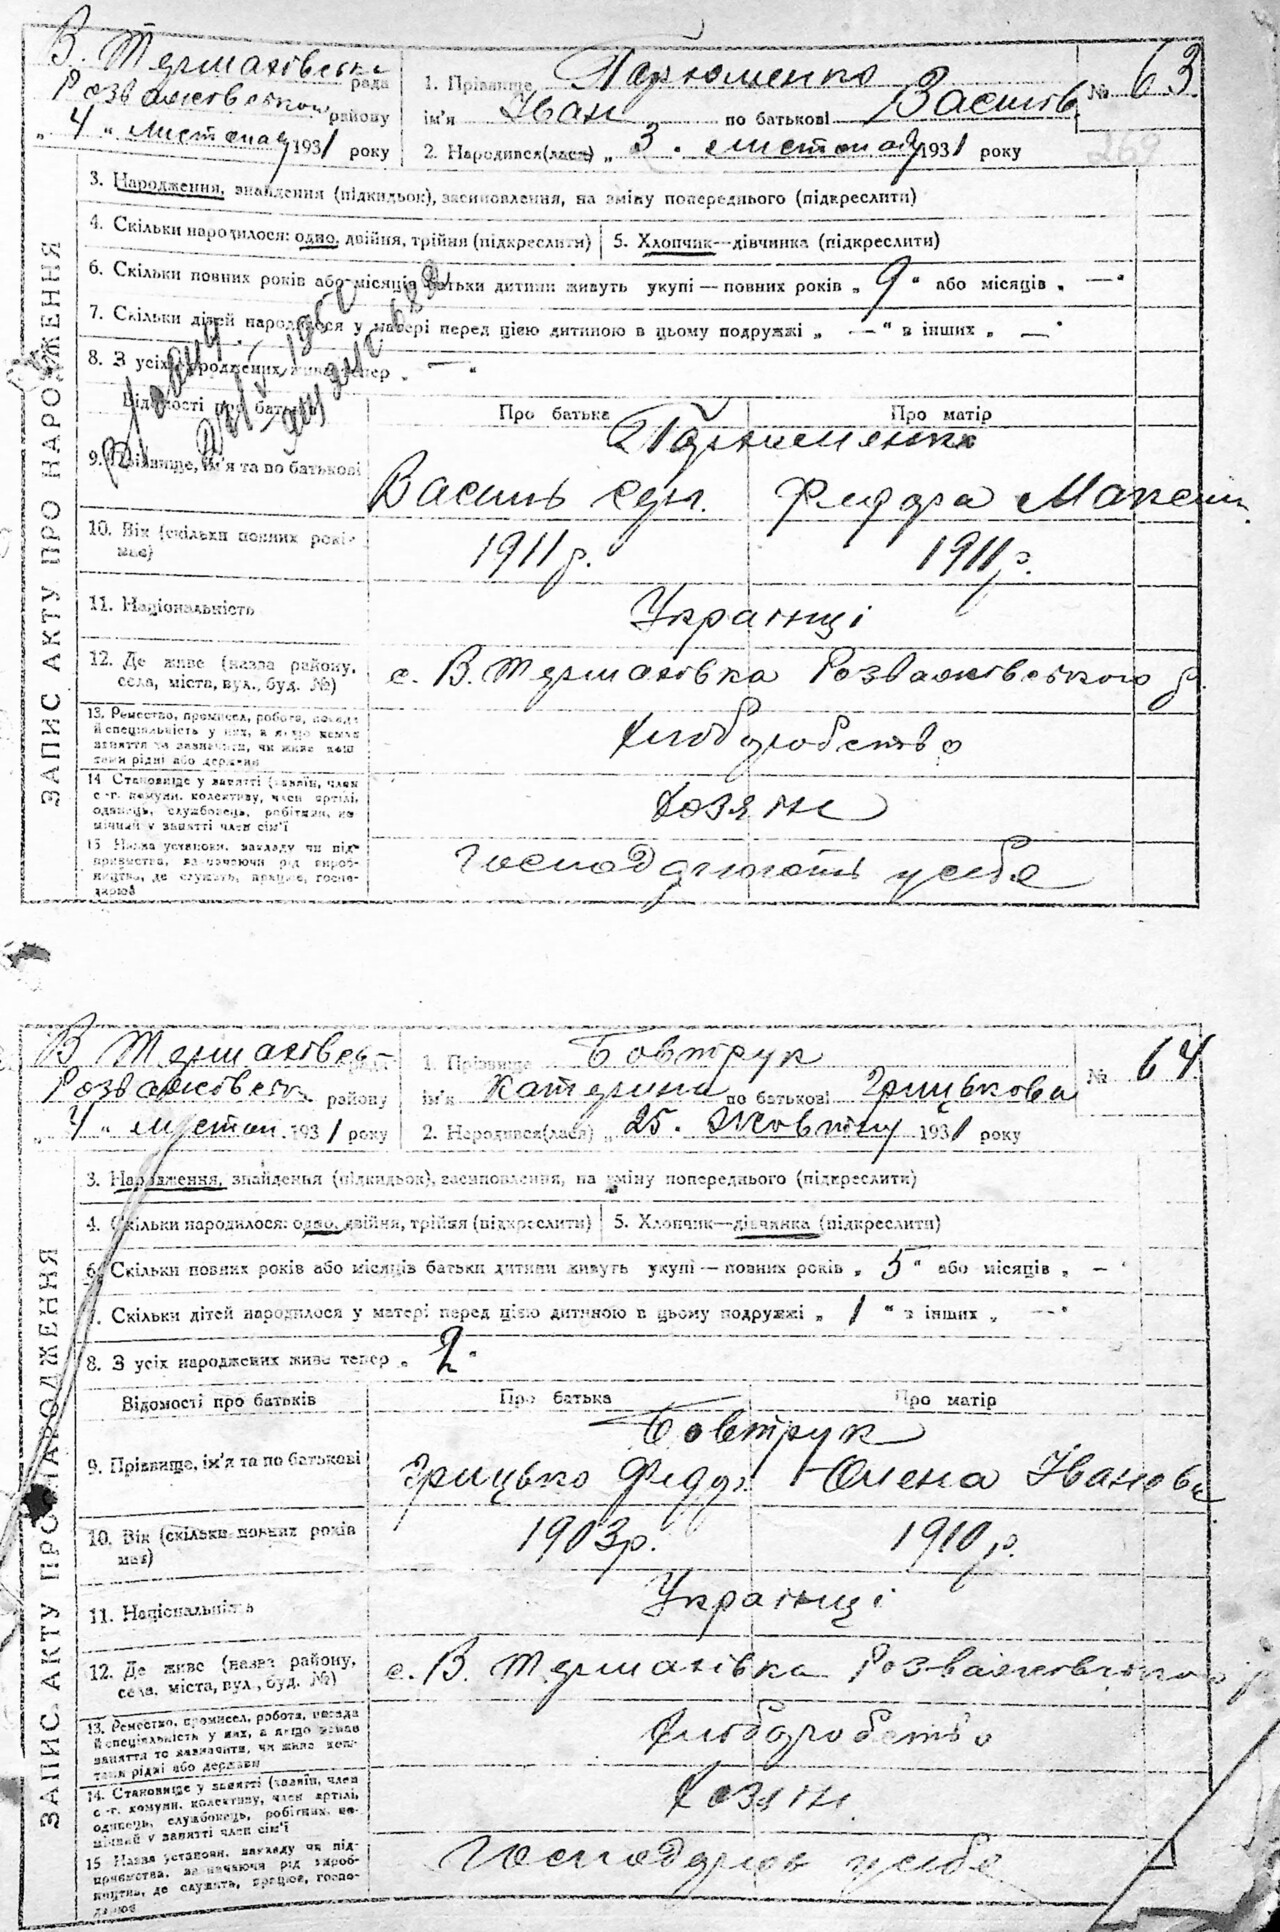 В. Термахівська рада
Розважівськ району
„ 4 " листопад 1931 року
1. Прізвище Пархоменко
ім'я Іван по батькові Василів
№ 63
269
2. Народився(лася) „ 3 . листопад 1931 року
3. Народження, знайдення (підкидьок), засиновлення, на зміну попереднього (підкреслити)
4. Скільки народилося: одно, двійня, трійня (підкреслити) 5. Хлопчик—дівчинка (підкреслити)
6. Скільки повних років або місяців батьки дитини живуть укупі — повних років „ 9 " або місяців „ — "
7. Скільки дітей народилося у матері перед цією дитиною в цьому подружжі „ — " в інших „ — "
8. З усіх народжених живе тепер „ — "
Відомості про батьків Про батька Про матір
9. Прізвище, ім'я та по батькові
Пархоменко
Василь Федора Максим.
10. Вік (скільки повних років має)
1911 р. 1911 р.
11. Національність Українці
12. Де живе (назва району, села, міста, вул., буд. №)
с. В. Термахівка Розважівського р.
13. Ремество, промисел, робота, посада й спеціяльність у них, а якщо немає заняття то зазначити, чи живе коштами рідні або держави
Хліборобство
14 Становище у занятті (хазяїн, член с.-г. комуни, колективу, член артілі, одинець, службовець, робітник, помічний у занятті член сім'ї
Хозяїн
15 Назва установи, закладу чи підприємства, зазначаючи рід виробництва, де служить, працює, господарює
Господарюють у себе
ЗАПИС АКТУ ПРО НАРОДЖЕННЯ
В. Термахівсь- рада
Розважівськ району
„ 4 " листоп. 1931 року
1. Прізвище Бовтрук
ім'я Катерина по батькові Грицькова
№ 64
2. Народився(лася) „ 25. Жовтня 1931 року
3. Народження, знайдення (підкидьок), засиновлення, на зміну попереднього (підкреслити)
4. Скільки народилося: одно, двійня, трійня (підкреслити) 5. Хлопчик—дівчинка (підкреслити)
6. Скільки повних років або місяців батьки дитини живуть укупі — повних років „ 5 " або місяців „ — "
7. Скільки дітей народилося у матері перед цією дитиною в цьому подружжі „ 1 " в інших „ — "
8. З усіх народжених живе тепер „ 2 "
Відомості про батьків Про батька Про матір
9. Прізвище, ім'я та по батькові
Бовтрук
Грицько Федор. Олена Іванова
10. Вік (скільки повних років має)
1903 р. 1910 р.
11. Національність Українці
12. Де живе (назва району, села, міста, вул., буд. №)
с. В. Термахівка Розважівського р
13. Ремество, промисел, робота, посада й спеціяльність у них, а якщо немає заняття то зазначити, чи живе коштами рідні або держави
Хліборобство
14. Становище у занятті (хазяїн, член с.-г. комуни, колективу, член артілі, одинець, службовець, робітник, помічний у занятті член сім'ї
Хозяїн.
15 Назва установи, закладу чи підприємства, зазначаючи рід виробництва, де служить, працює, господарює
Господарює у себе
ЗАПИС АКТУ ПРО НАРОДЖЕННЯ